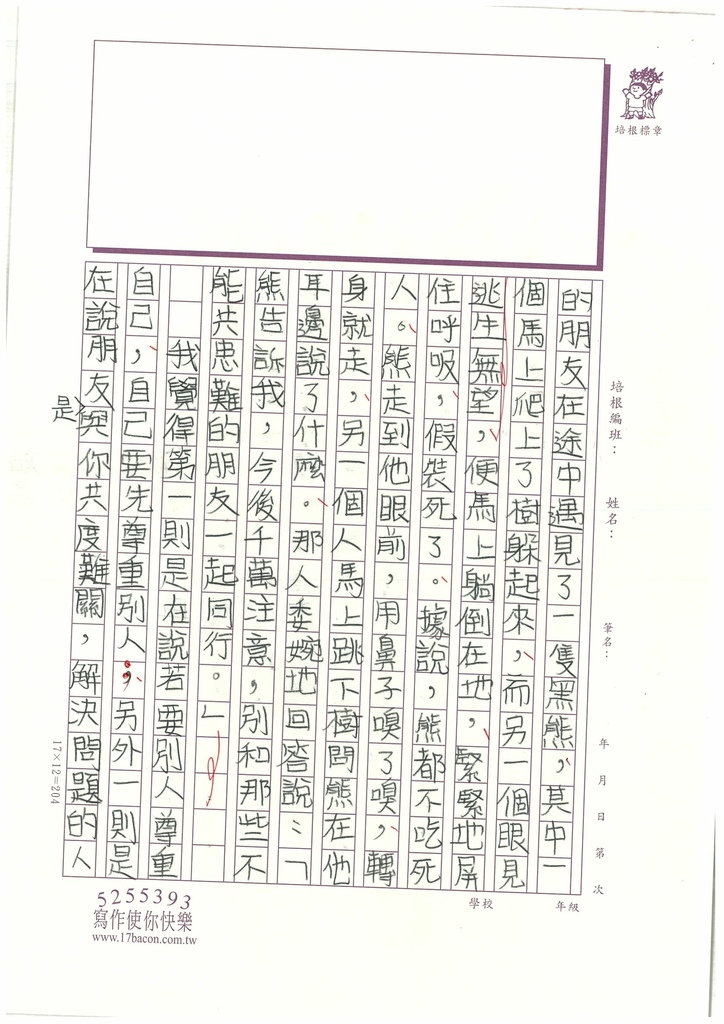 培根標章
培根編班：
姓名：
筆名：
年 月 日 第 次
學校
年級
的朋友在途中遇見了一隻黑熊，其中一
個馬上爬上了樹躲起來，而另一個眼見
逃生無望，便馬上躺倒在地，緊緊地屏
住呼吸，假裝死了。據說，熊都不吃死
人。熊走到他眼前，用鼻子嗅了嗅，轉
身就走，另一個人馬上跳下樹問熊在他
耳邊說了什麼。那人委婉地回答說：「
熊告訴我，今後千萬注意，別和那些不
能共患難的朋友一起同行。」
我覺得第一則是在說若要別人尊重
自己，自己要先尊重別人；另外一則是
在說朋友是與你共度難關，解決問題的人
17×12=204
5255393
寫作使你快樂
www.17bacon.com.tw